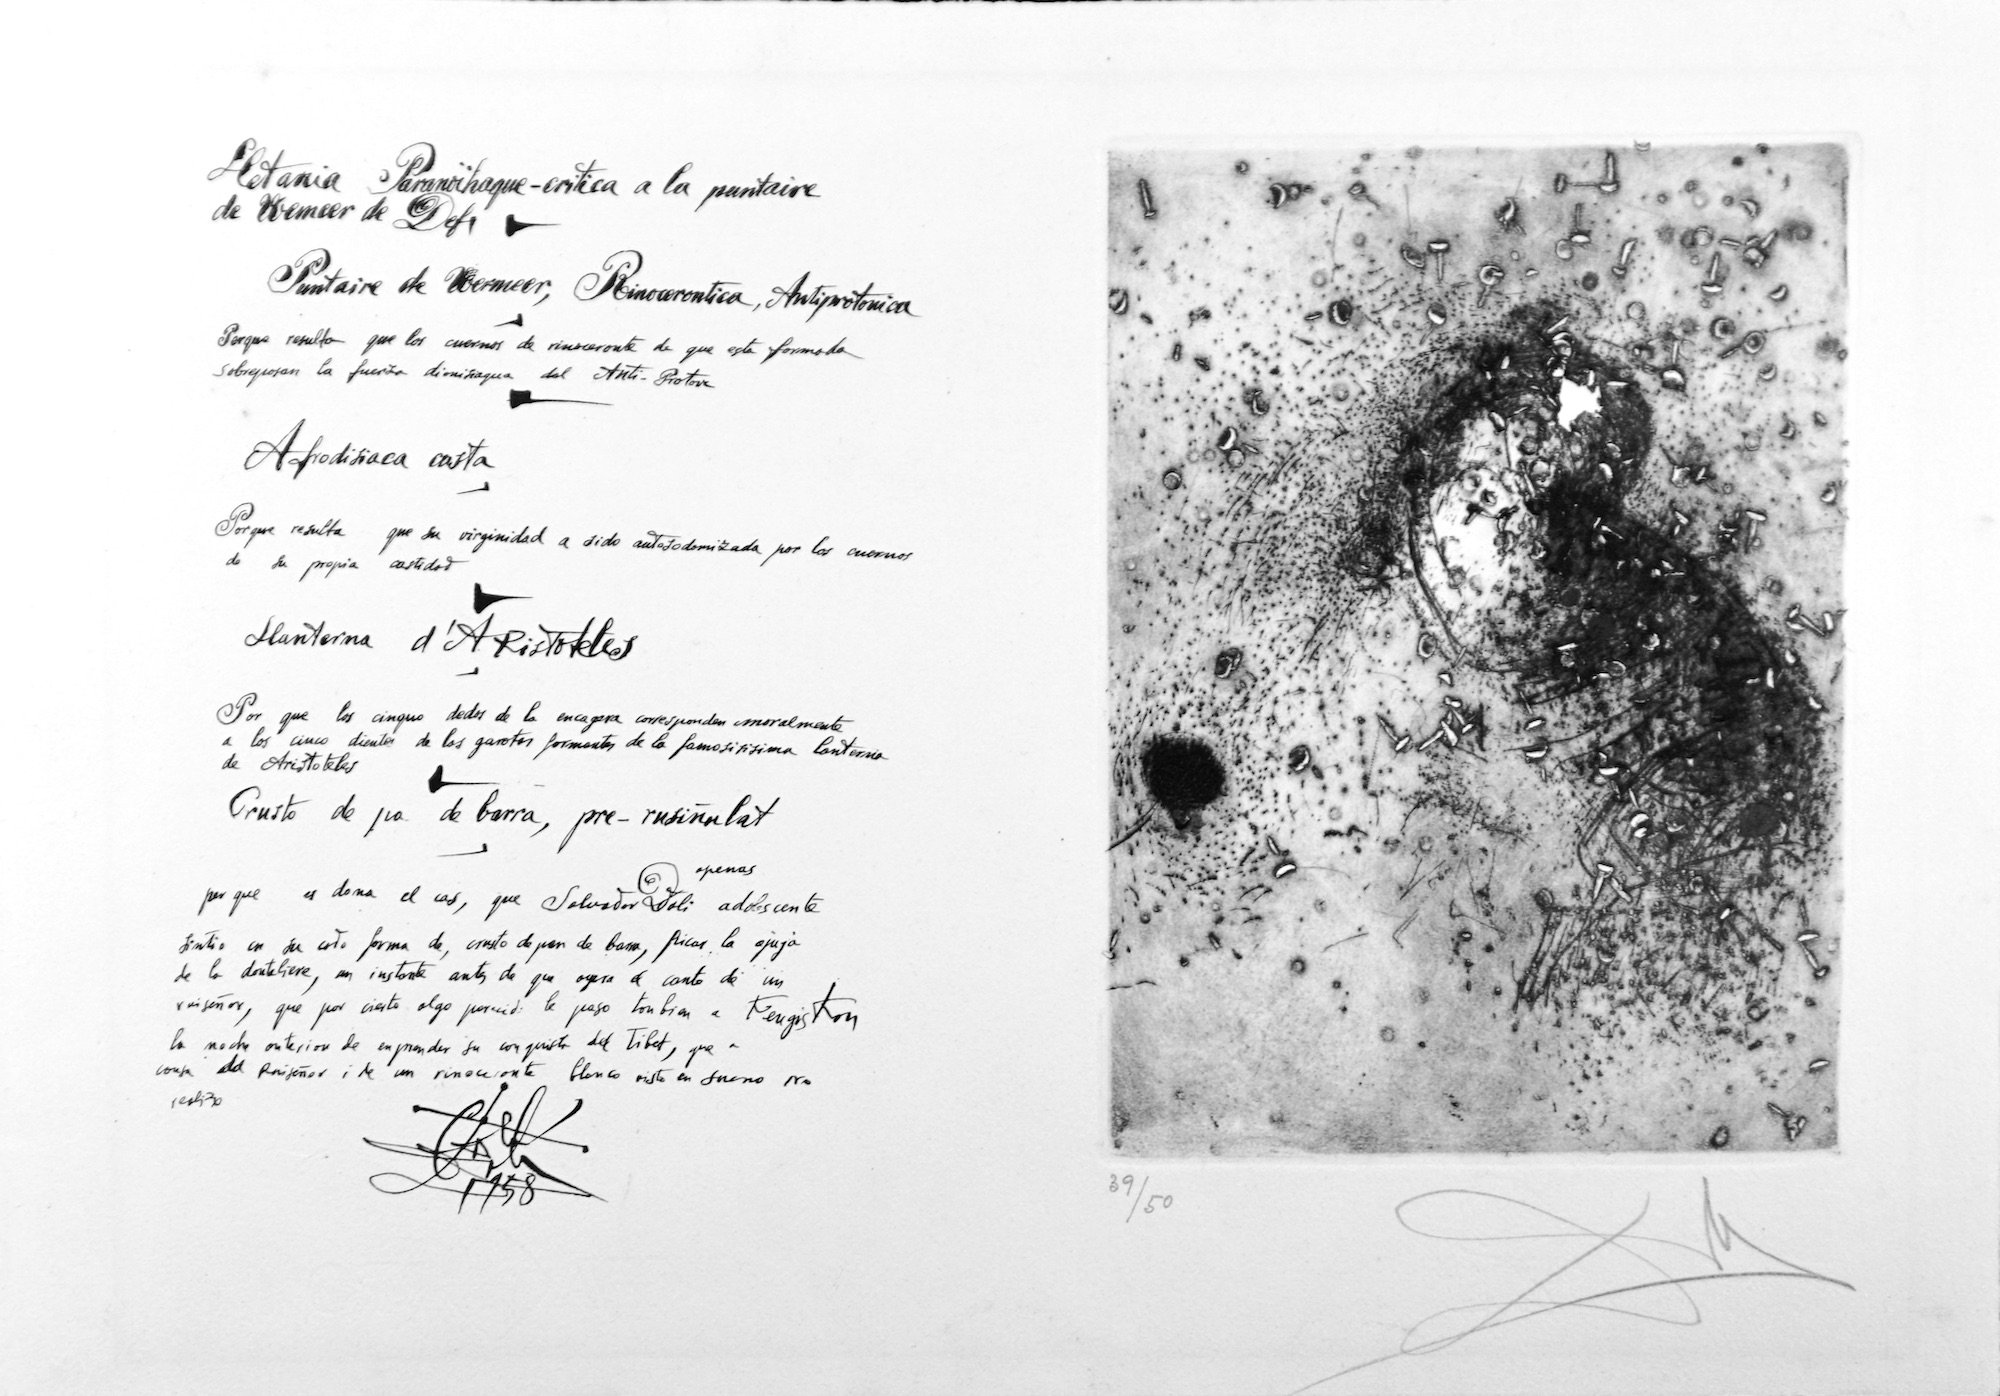 Lletania Paranoihaque-critica a la puntaire
de Vermeer de Deft
Puntaire de Vermeer, Rinocerontica, Antiprotonica
Porque resulta que los cuernos de rinoceronte de que esta formada
sobreposan la fuerza dionisiaqua del Anti-Proton
Afrodisiaca casta
Porque resulta que su virginidad a sido autosodomizada por los cuernos
de su propia castidad
Llanterna d'Aristoteles
Por que los cinquo dedos de la encagera corresponden moralmente
a los cinco dientes de las garotes formantes de la famosisisima lanterna
de Aristoteles
Crusto de pa de barra, pre-rusiñulat
per que es dona el cas, que Salvador Dali apenas adolescente
sintio en su codo forma de, crusto de pan de barra, picar la ajuja
de la denteliere, un instante antes de que oyera el canto de un
ruiseñor, que por cierto algo parecido le paso tambien a Kengis Kan
la noche anterior de emprender su conquista del Tibet, que a
causa del Ruiseñor i de un rinoceronte blanco visto en sueno no
realizo
1958
39/50